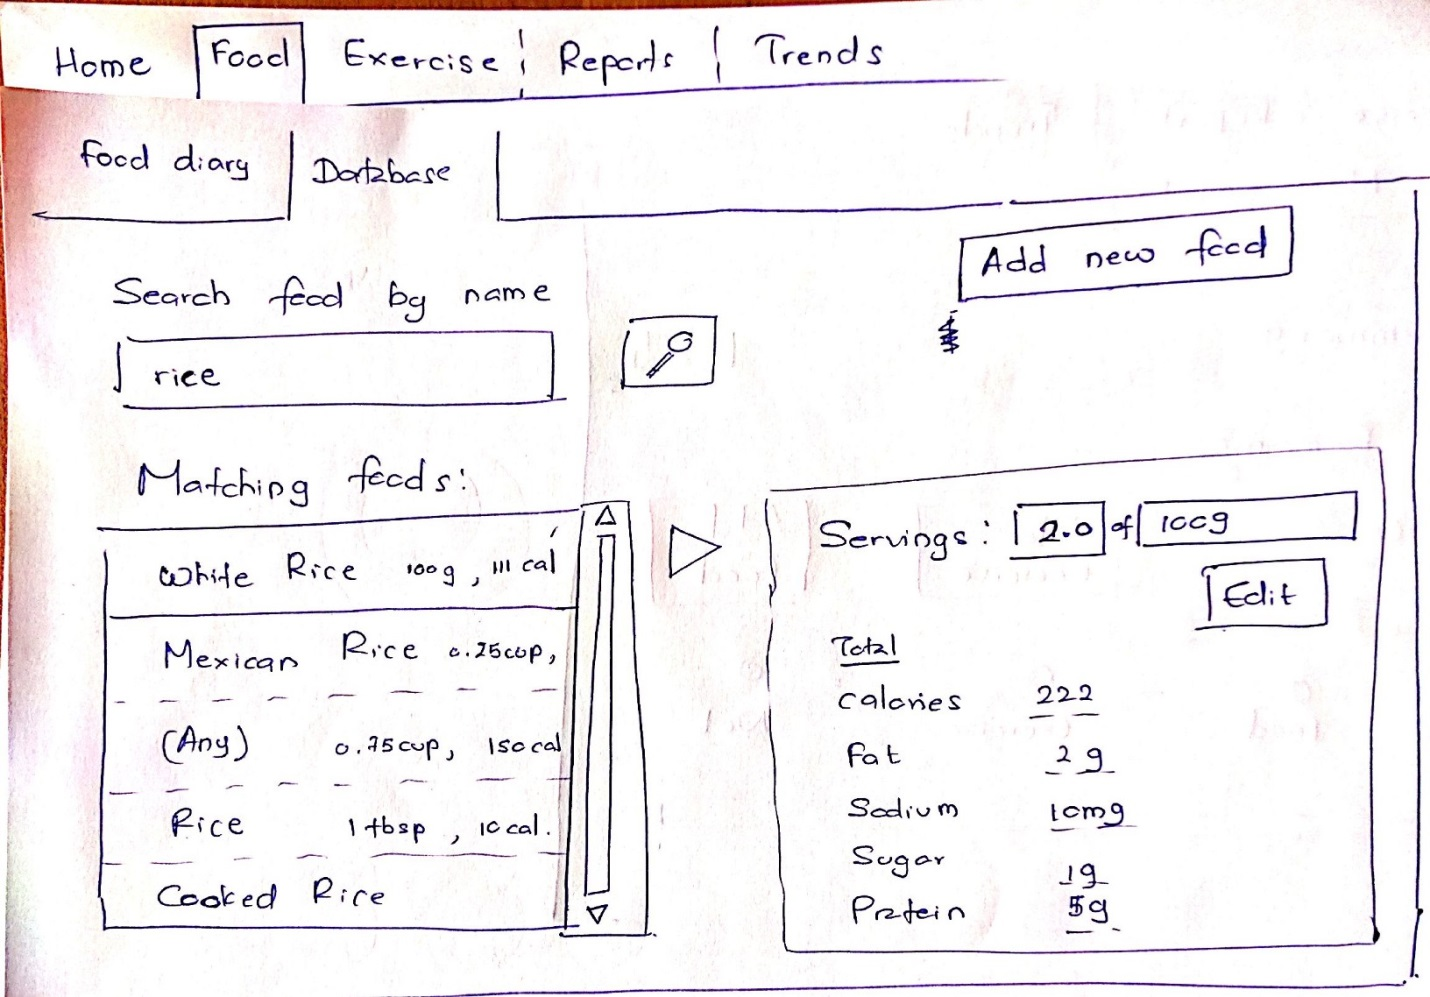 Home Food Exercise Reports Trends
Food diary Database
Add new food
Search food by name
rice
Matching foods:
White Rice 100g, 111 cal
Mexican Rice 0.25cup,
(Any) 0.75cup, 150 cal
Rice 1 tbsp, 10 cal.
Cooked Rice
Servings: 2.0 of 100g
Edit
Total
Calories 222
Fat 2g
Sodium 10mg
Sugar 1g
Protein 5g